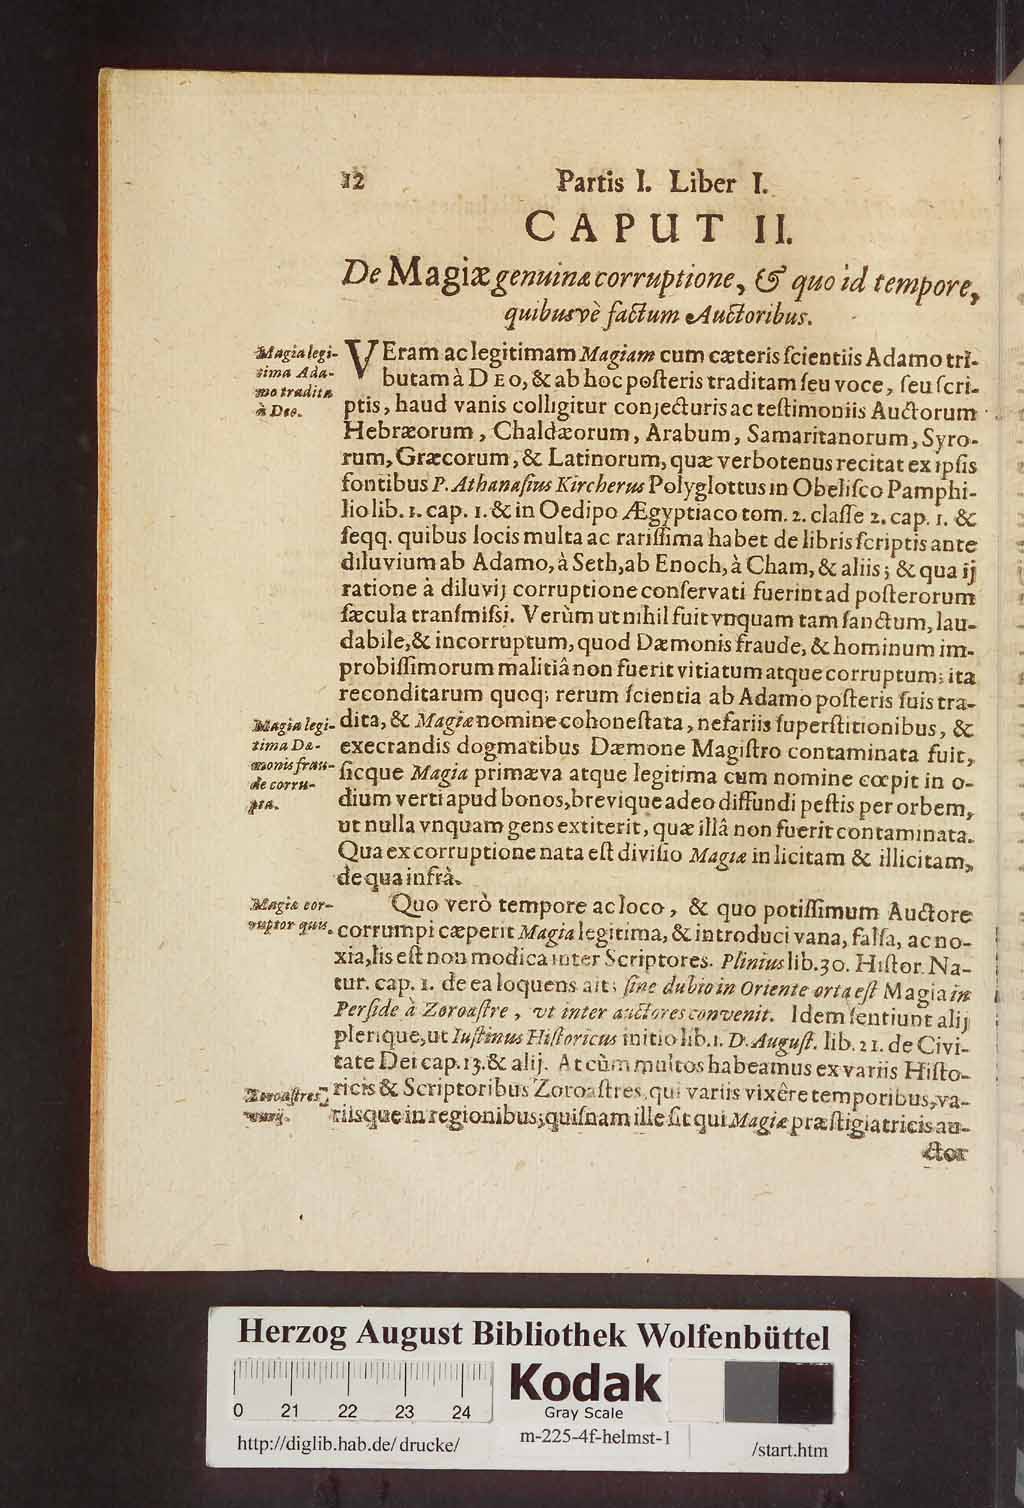 12 Partis I. Liber I.
CAPUT II.
De Magiæ genuinæ corruptione, & quo id tempore,
quibusvè factum Auctoribus.
Magia legi-
tima Ada-
mo tradita
à Deo.
VEram ac legitimam Magiam cum cæteris scientiis Adamo tri-
butam à DEO, & ab hoc posteris traditam seu voce, seu scri-
ptis, haud vanis colligitur conjecturis ac testimoniis Auctorum
Hebræorum, Chaldæorum, Arabum, Samaritanorum, Syro-
rum, Græcorum, & Latinorum, quæ verbotenus recitat ex ipsis
fontibus P. Athanasius Kircherus Polyglottus in Obelisco Pamphi-
lio lib. 1. cap. 1. & in Oedipo Ægyptiaco tom. 2. classe 2. cap. 1. &
seqq. quibus locis multa ac rarissima habet de libris scriptis ante
diluvium ab Adamo, à Seth, ab Enoch, à Cham, & aliis; & qua ij
ratione à diluvij corruptione conservati fuerint ad posterorum
sæcula transmissi. Verùm ut nihil fuit vnquam tam sanctum, lau-
dabile, & incorruptum, quod Dæmonis fraude, & hominum im-
probissimorum malitiâ non fuerit vitiatum atque corruptum; ita
reconditarum quoq; rerum scientia ab Adamo posteris suis tra-
Magia legi-
tima Dæ-
monis frau-
de corru-
pta.
dita, & Magiæ nomine cohonestata, nefariis superstitionibus, &
execrandis dogmatibus Dæmone Magistro contaminata fuit,
sicque Magia primæva atque legitima cum nomine cœpit in o-
dium verti apud bonos, brevique adeo diffundi pestis per orbem,
ut nulla vnquam gens extiterit, quæ illâ non fuerit contaminata.
Qua ex corruptione nata est divisio Magiæ in licitam & illicitam,
de qua infrà.
Magiæ cor-
ruptor quis.
Quo verò tempore ac loco, & quo potissimum Auctore
corrumpi cæperit Magia legitima, & introduci vana, falsa, ac no-
xia, lis est non modica inter Scriptores. Plinius lib. 30. Histor. Na-
tur. cap. 1. de ea loquens ait: sine dubio in Oriente orta est Magia in
Perside à Zoroastre, vt inter auctores convenit. Idem sentiunt alij
plerique, ut Iustinus Historicus initio lib. 1. D. August. lib. 21. de Civi-
tate Dei cap. 13. & alij. At cùm multos habeamus ex variis Histo-
Zoroastres
varij.
ricis & Scriptoribus Zoroastres, qui variis vixêre temporibus, va-
riisque in regionibus; quisnam ille sit qui Magiæ præstigiatricis au-
ctor
Herzog August Bibliothek Wolfenbüttel
0 21 22 23 24
Kodak
Gray Scale
http://diglib.hab.de/drucke/
m-225-4f-helmst-1
/start.htm